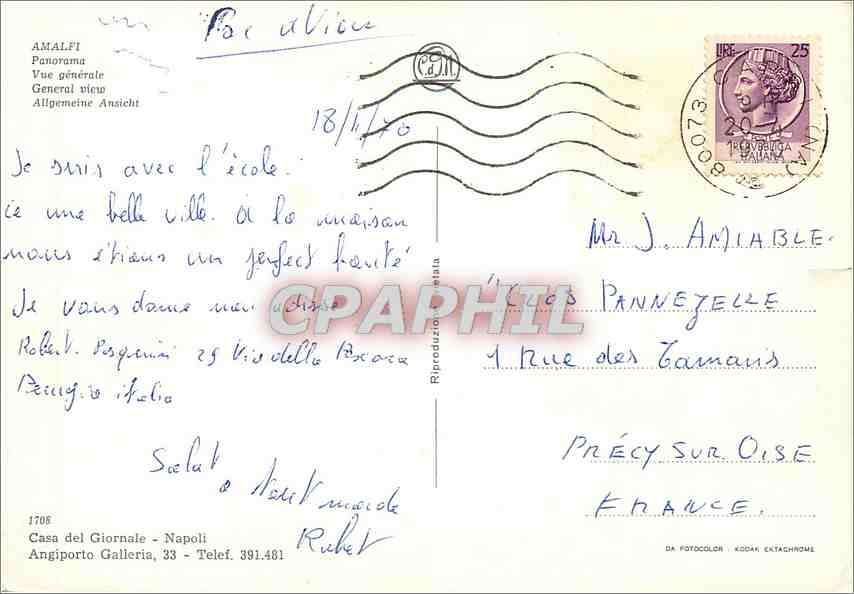 Par avion
AMALFI
Panorama
Vue générale
General view
Allgemeine Ansicht
C.d.G.N.
LIRE 25
POSTE
REPVBBLICA
ITALIANA
80073 CAPRI (NA)
20-4
18/4/70
Je suis avec l'école.
ce une belle ville. à la maison
nous étions un perfect santé
Je vous done mon adisse
Robert. Pasquini 29 Via della Pescara
Perugia italia
Salut
a tout monde
Robert
Mr J. AMIABLE.
"CLOS PANNEZELLE
1 Rue des Tamaris
PRÉCY SUR OISE
FRANCE.
CPAPHIL
Riproduzione vietata
1706
Casa del Giornale - Napoli
Angiporto Galleria, 33 - Telef. 391.481
DA FOTOCOLOR KODAK EKTACHROME